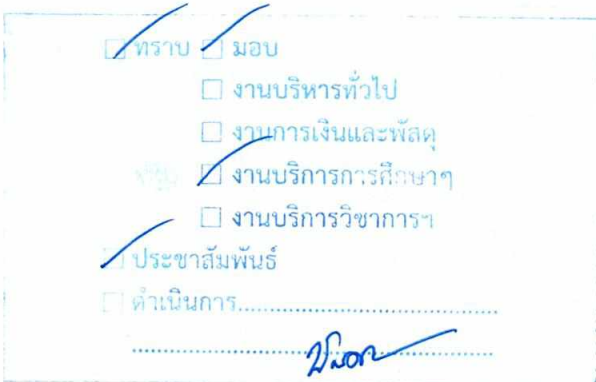 ทราบ มอบ
งานบริหารทั่วไป
งานการเงินและพัสดุ
งานบริการการศึกษาฯ
งานบริการวิชาการฯ
ประชาสัมพันธ์
ดำเนินการ